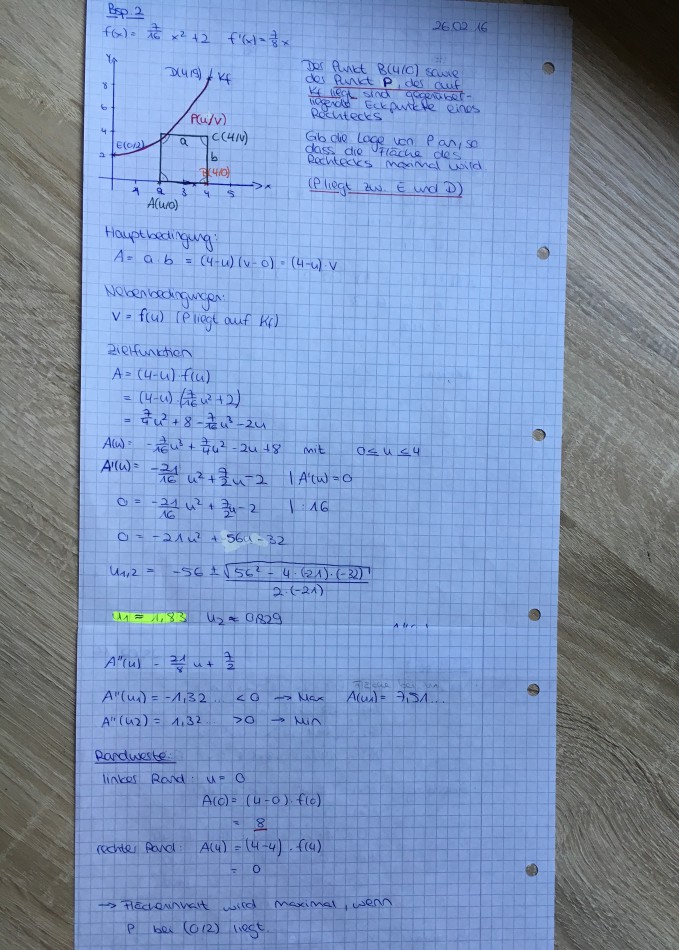 Bsp. 2
26.02.16
f(x) = 7/16 x² + 2 f'(x) = 7/8 x
Der Punkt B(4/0) sowie
der Punkt P, der auf
Kf liegt sind gegenüber-
liegende Eckpunkte eines
Rechtecks
Gib die Lage von P an, so
dass die Fläche des
Rechtecks maximal wird.
(P liegt zw. E und D)
y
8
6
4
2
D(4/9)
Kf
P(u/v)
E(0/2)
a
C(4/v)
b
B(4/0)
1 2 3 4 5 x
A(u/0)
Hauptbedingung:
A = a · b = (4-u)(v-0) = (4-u) · v
Nebenbedingungen:
v = f(u) (P liegt auf Kf)
Zielfunktion
A = (4-u) · f(u)
= (4-u) · (7/16 u² + 2)
= 7/4 u² + 8 - 7/16 u³ - 2u
A(u) = -7/16 u³ + 7/4 u² - 2u + 8 mit 0 ≤ u ≤ 4
A'(u) = -21/16 u² + 7/2 u - 2 | A'(u) = 0
0 = -21/16 u² + 7/2 u - 2 | · 16
0 = -21u² + 56u - 32
u1,2 = -56 ± √(56² - 4 · (-21) · (-32)) / 2 · (-21)
u1 ≈ 1,83 u2 ≈ 0,829
A''(u) - 21/8 u + 7/2
A''(u1) = -1,32... < 0 → Max A(u1) = 7,51...
A''(u2) = 1,32... > 0 → Min
Randwerte:
linker Rand: u = 0
A(0) = (4-0) · f(0)
= 8
rechter Rand: A(4) = (4-4) · f(4)
= 0
→ Flächeninhalt wird maximal, wenn
P bei (0/2) liegt.